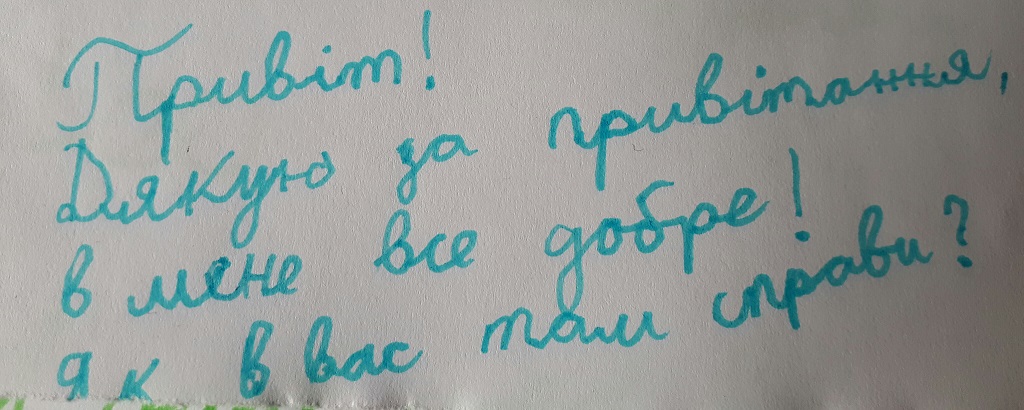 Привіт!
Дякую за привітання,
в мене все добре!
як в вас там справи?